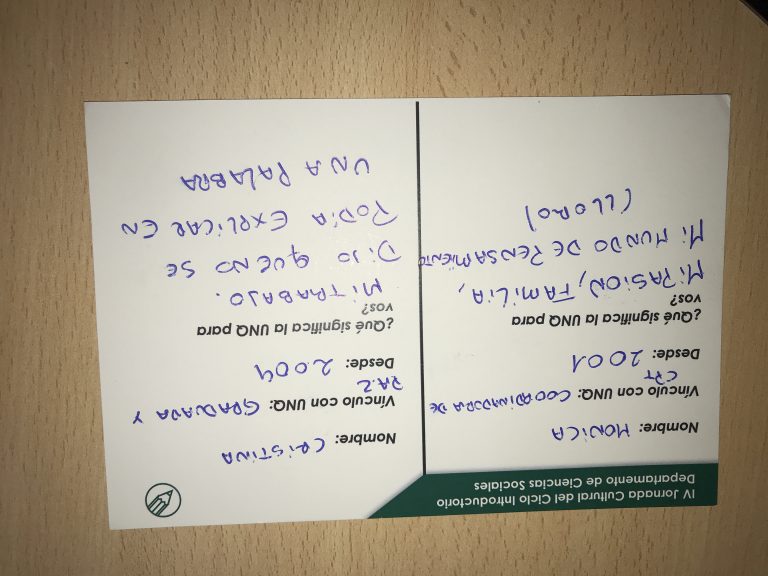 IV Jornada Cultural del Ciclo Introductorio
Departamento de Ciencias Sociales
Nombre: MONICA
Vínculo con UNQ: COORDINADORA DE
CPT
Desde: 2001
¿Qué significa la UNQ para
vos?
MI PASION, FAMILIA,
MI MUNDO DE PENSAMIENTO
(LLORO)
Nombre: CRISTINA
Vínculo con UNQ: GRADUADA Y
Desde: 2004
¿Qué significa la UNQ para
vos?
MI TRABAJO.
DIJO QUE NO SE
PODÍA EXPLICAR EN
UNA PALABRA